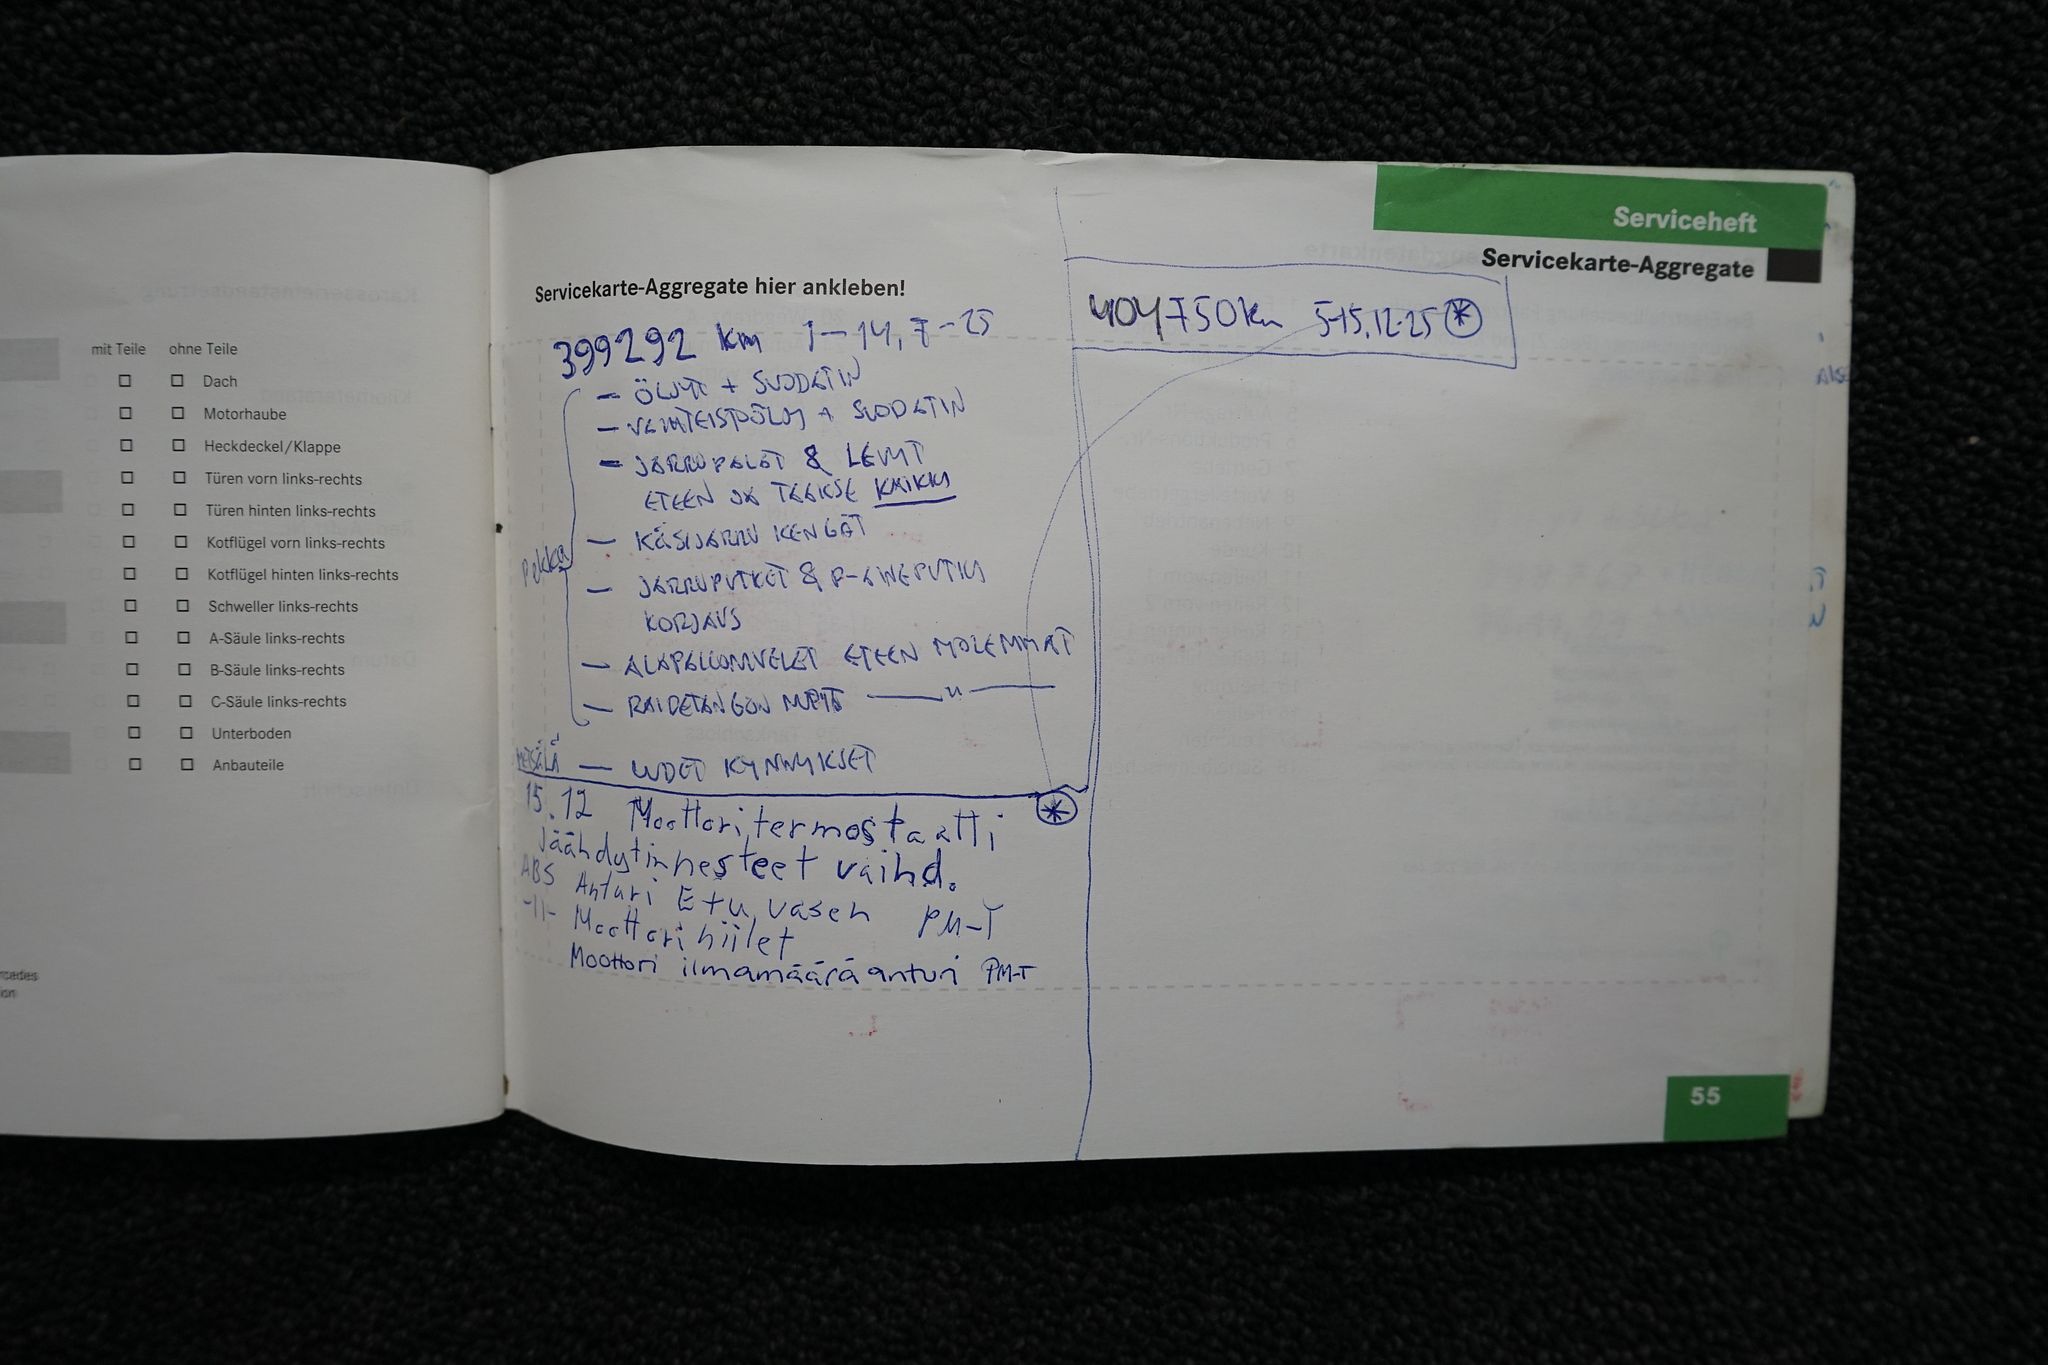 mit Teile ohne Teile
Dach
Motorhaube
Heckdeckel/Klappe
Türen vorn links-rechts
Türen hinten links-rechts
Kotflügel vorn links-rechts
Kotflügel hinten links-rechts
Schweller links-rechts
A-Säule links-rechts
B-Säule links-rechts
C-Säule links-rechts
Unterboden
Anbauteile
Serviceheft
Servicekarte-Aggregate
Servicekarte-Aggregate hier ankleben!
399292 km 1-14,7-25
- ÖLJYT + SUODATIN
- VAIHTEISTOÖLJY + SUODATIN
- JARRUPALAT & LEVYT
ETEEN JA TAAKSE KAIKKI
- KÄSIJARRU KENGÄT
Pekka
- JARRUPUTKET &
KORJAUS
- ALAPALLONIVELET ETEEN MOLEMMAT
- RAIDETANGON PÄÄT — " —
METSÄLÄ - UUDET KYNNYKSET
15.12 Moottori, termostaatti
Jäähdytinnesteet vaihd.
ABS Anturi Etu, vasen PM-T
-11- Moottori hiilet
Moottori ilmamääräanturi PM-T
404750km 5-15.12-25 *
*
55